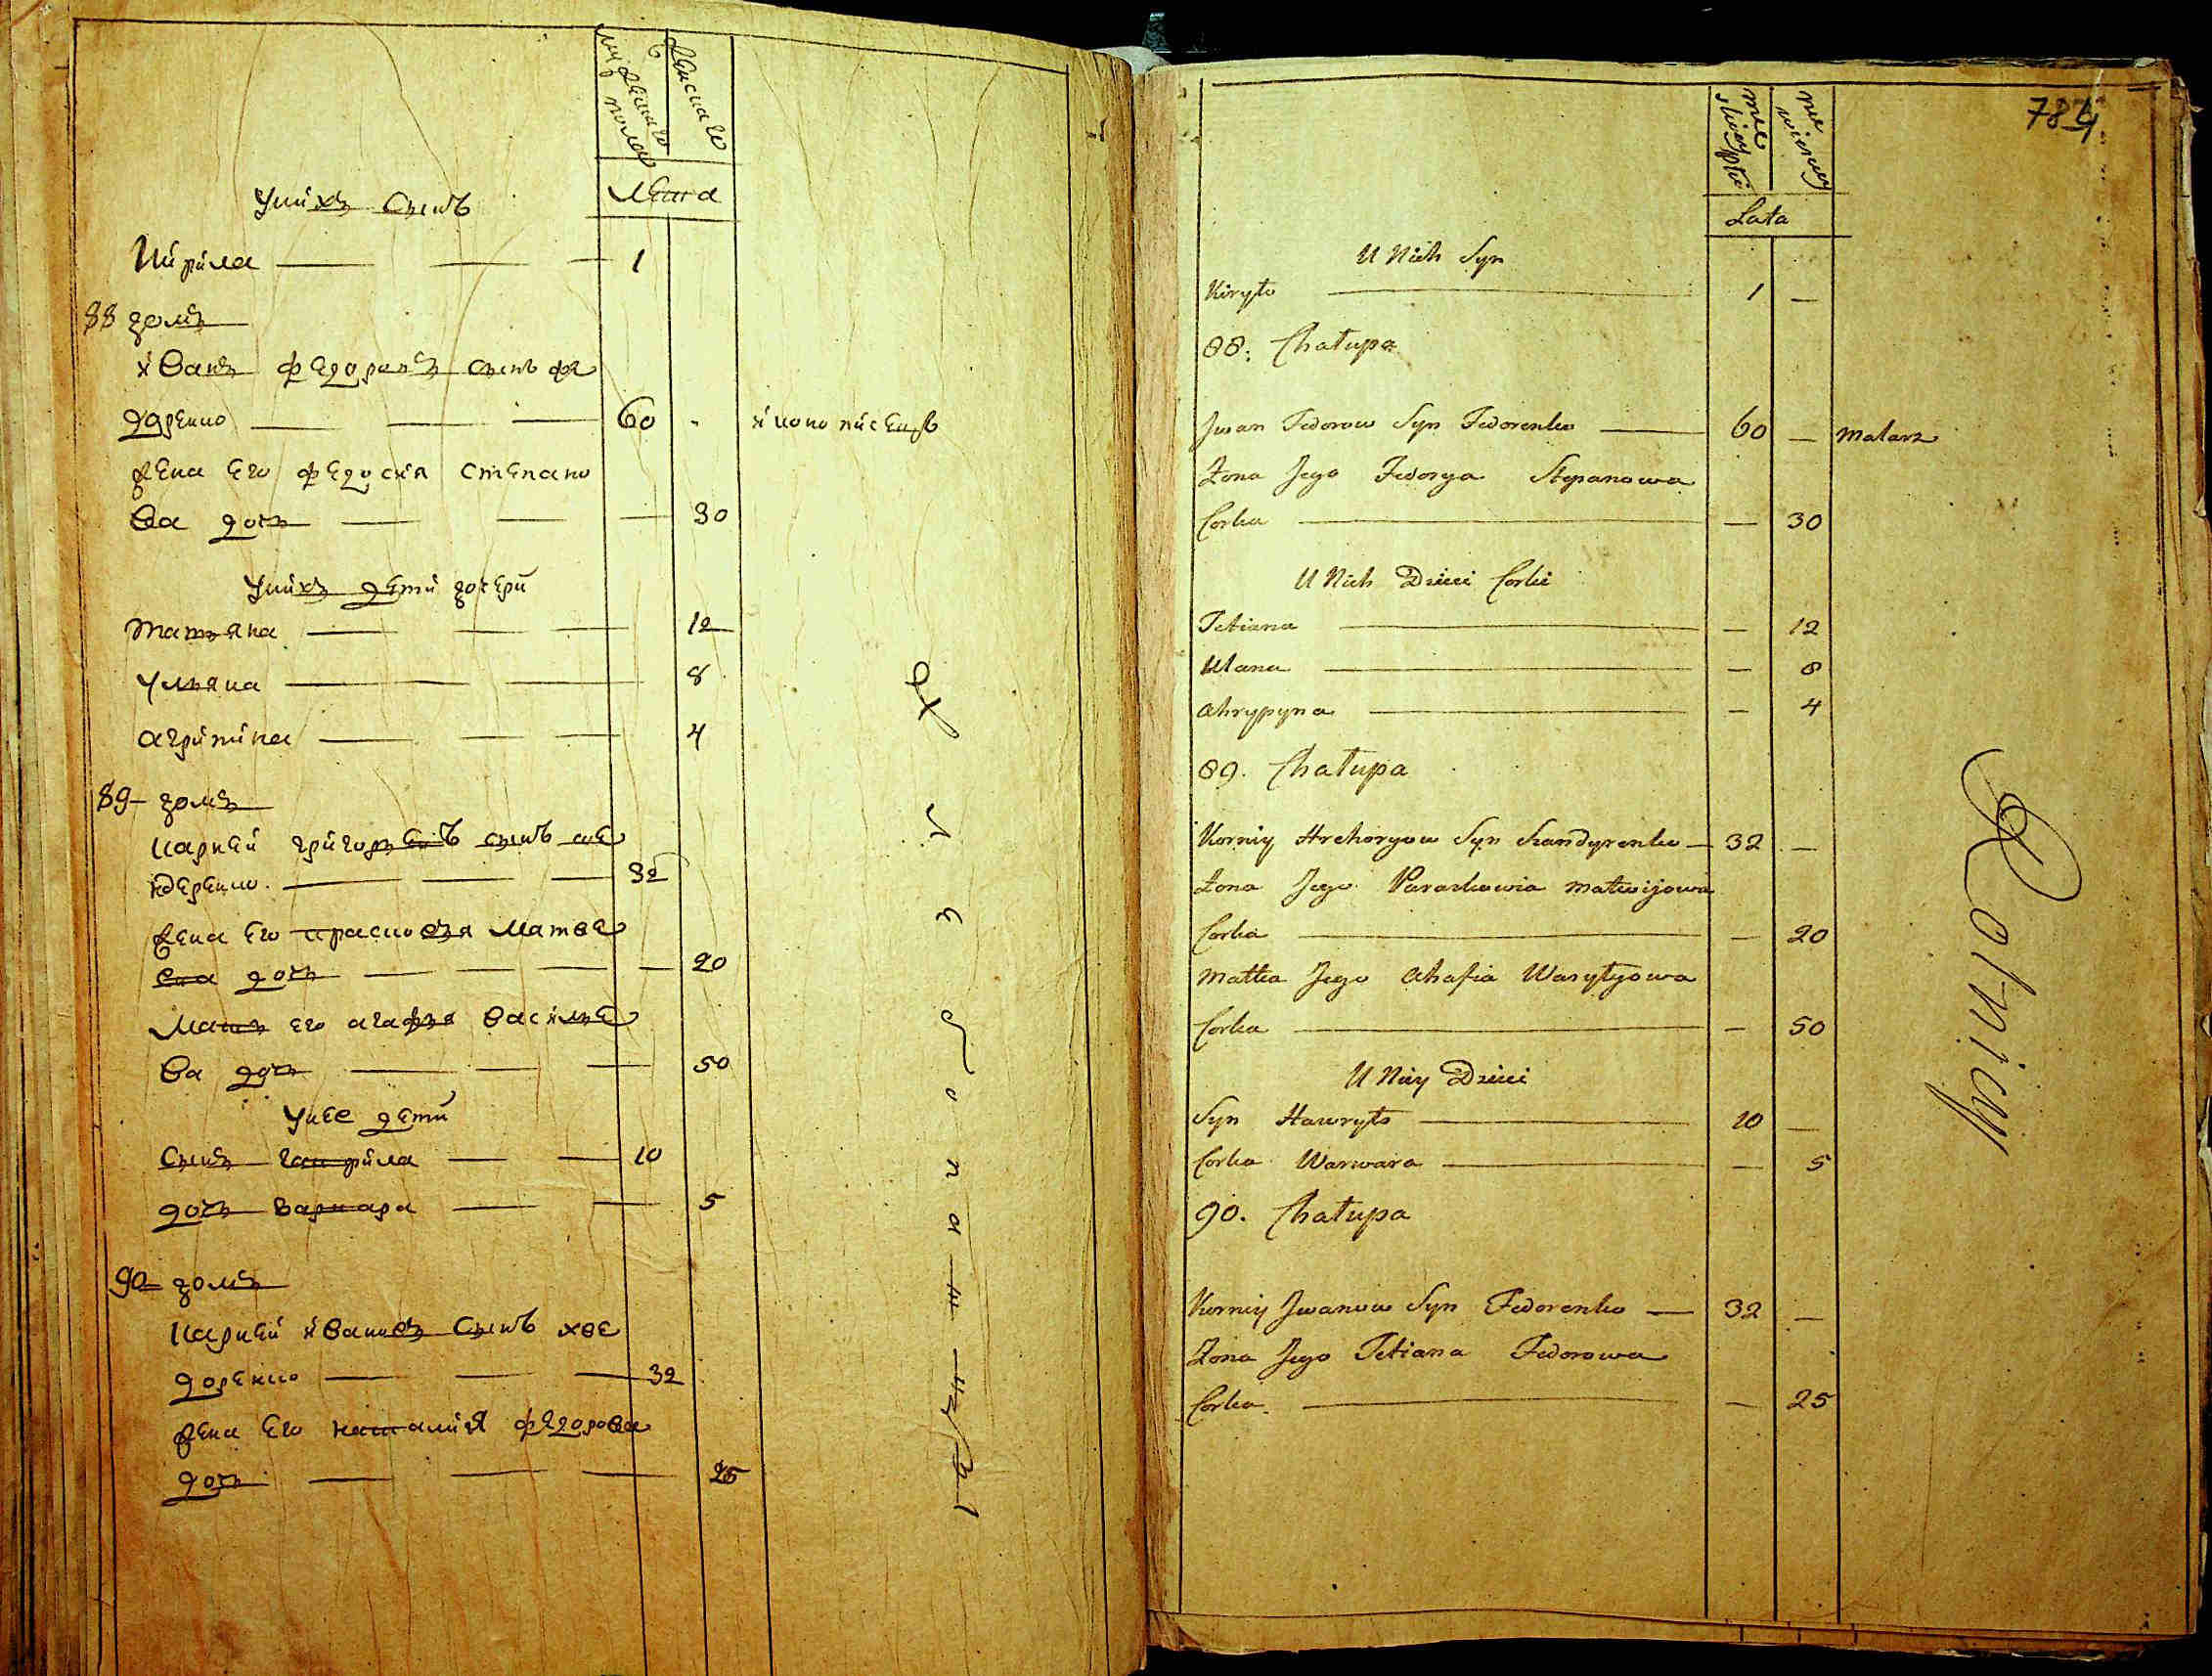 мужеска
го
пола
женска го
Лета
У нихъ сынъ
Кирила — 1
88 домъ
Иванъ федоровъ сынъ фе
доренко — 60 - иконописецъ
жена его федосия степано
ва дочь — 30
У нихъ дети дочери
Татьяна — 12
Ульяна — 8
агрипина — 4
89 домъ
карней григорьевъ сынъ ше
ндеренко — 32
жена его прасковья Матве
ева дочь — 20
Мать его агафья василье
ва дочь — 50
У нее дети
Сынъ гаврила — 10
дочь варвара — 5
90 домъ
карней ивановъ сынъ хве
доренко — 32
жена его наталия федорова
дочь — 25
хлебопашцы
784
męskiey płci
niewiescey
Lata
U Nich Syn
Kiryło — 1 —
88. Chałupa
Jwan Fedorow Syn Fedorenko — 60 — Malarz
Żona Jego Fedosya Stepanowa
Corka — — 30
U Nich Dzieci Corki
Tetiana — — 12
Ulana — — 8
Ahrypyna — — 4
89. Chałupa
Korniy Hrehoryow Syn Szandyrenko — 32 —
Żona Jego Paraskowia Matwijowa
Corka — — 20
Matka Jego Ahafia Wasylyowa
Corka — — 50
U Niey Dzieci
Syn Hawryło — 10 —
Corka Warwara — — 5
90. Chałupa
Korniy Jwanow Syn Fedorenko — 32 —
Żona Jego Tetiana Fedorowa
Corka — — 25
Rolnicy